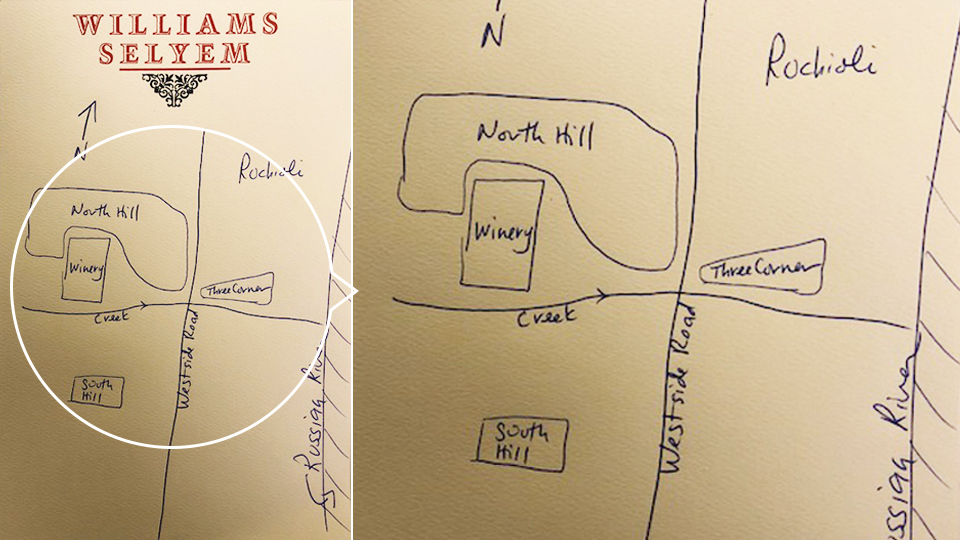 WILLIAMS
SELYEM
N
Rochioli
North Hill
Winery
Three Corner
Creek
Westside Road
South
Hill
Russian River
N
Rochioli
North Hill
Winery
Three Corner
Creek
Westside Road
South
Hill
ssian River